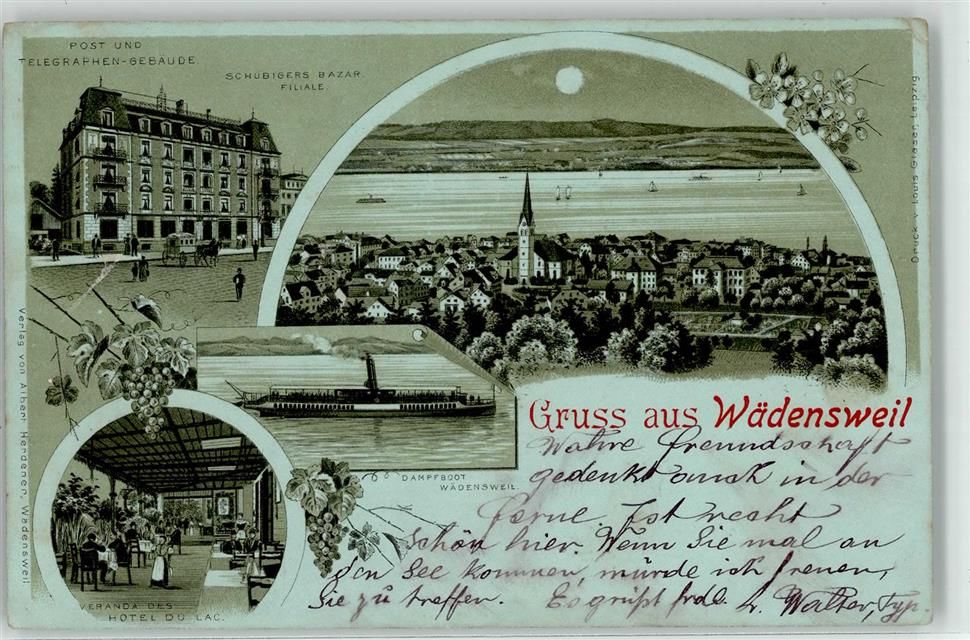 POST UND
TELEGRAPHEN-GEBÄUDE.
SCHUBIGERS BAZAR
FILIALE.
Druck v. Louis Glaser, Leipzig
Verlag von Albert Herdener, Wädensweil
Gruss aus Wädensweil
DAMPFBOOT
WÄDENSWEIL.
VERANDA DES
HOTEL DU LAC.
Wahre Freundschaft
gedenkt auch in der
Ferne. Ist recht
schön hier. Wenn Sie mal an
den See kommen, würde ich freuen,
Sie zu treffen. Es grüßt frdl. Walter, Typ.